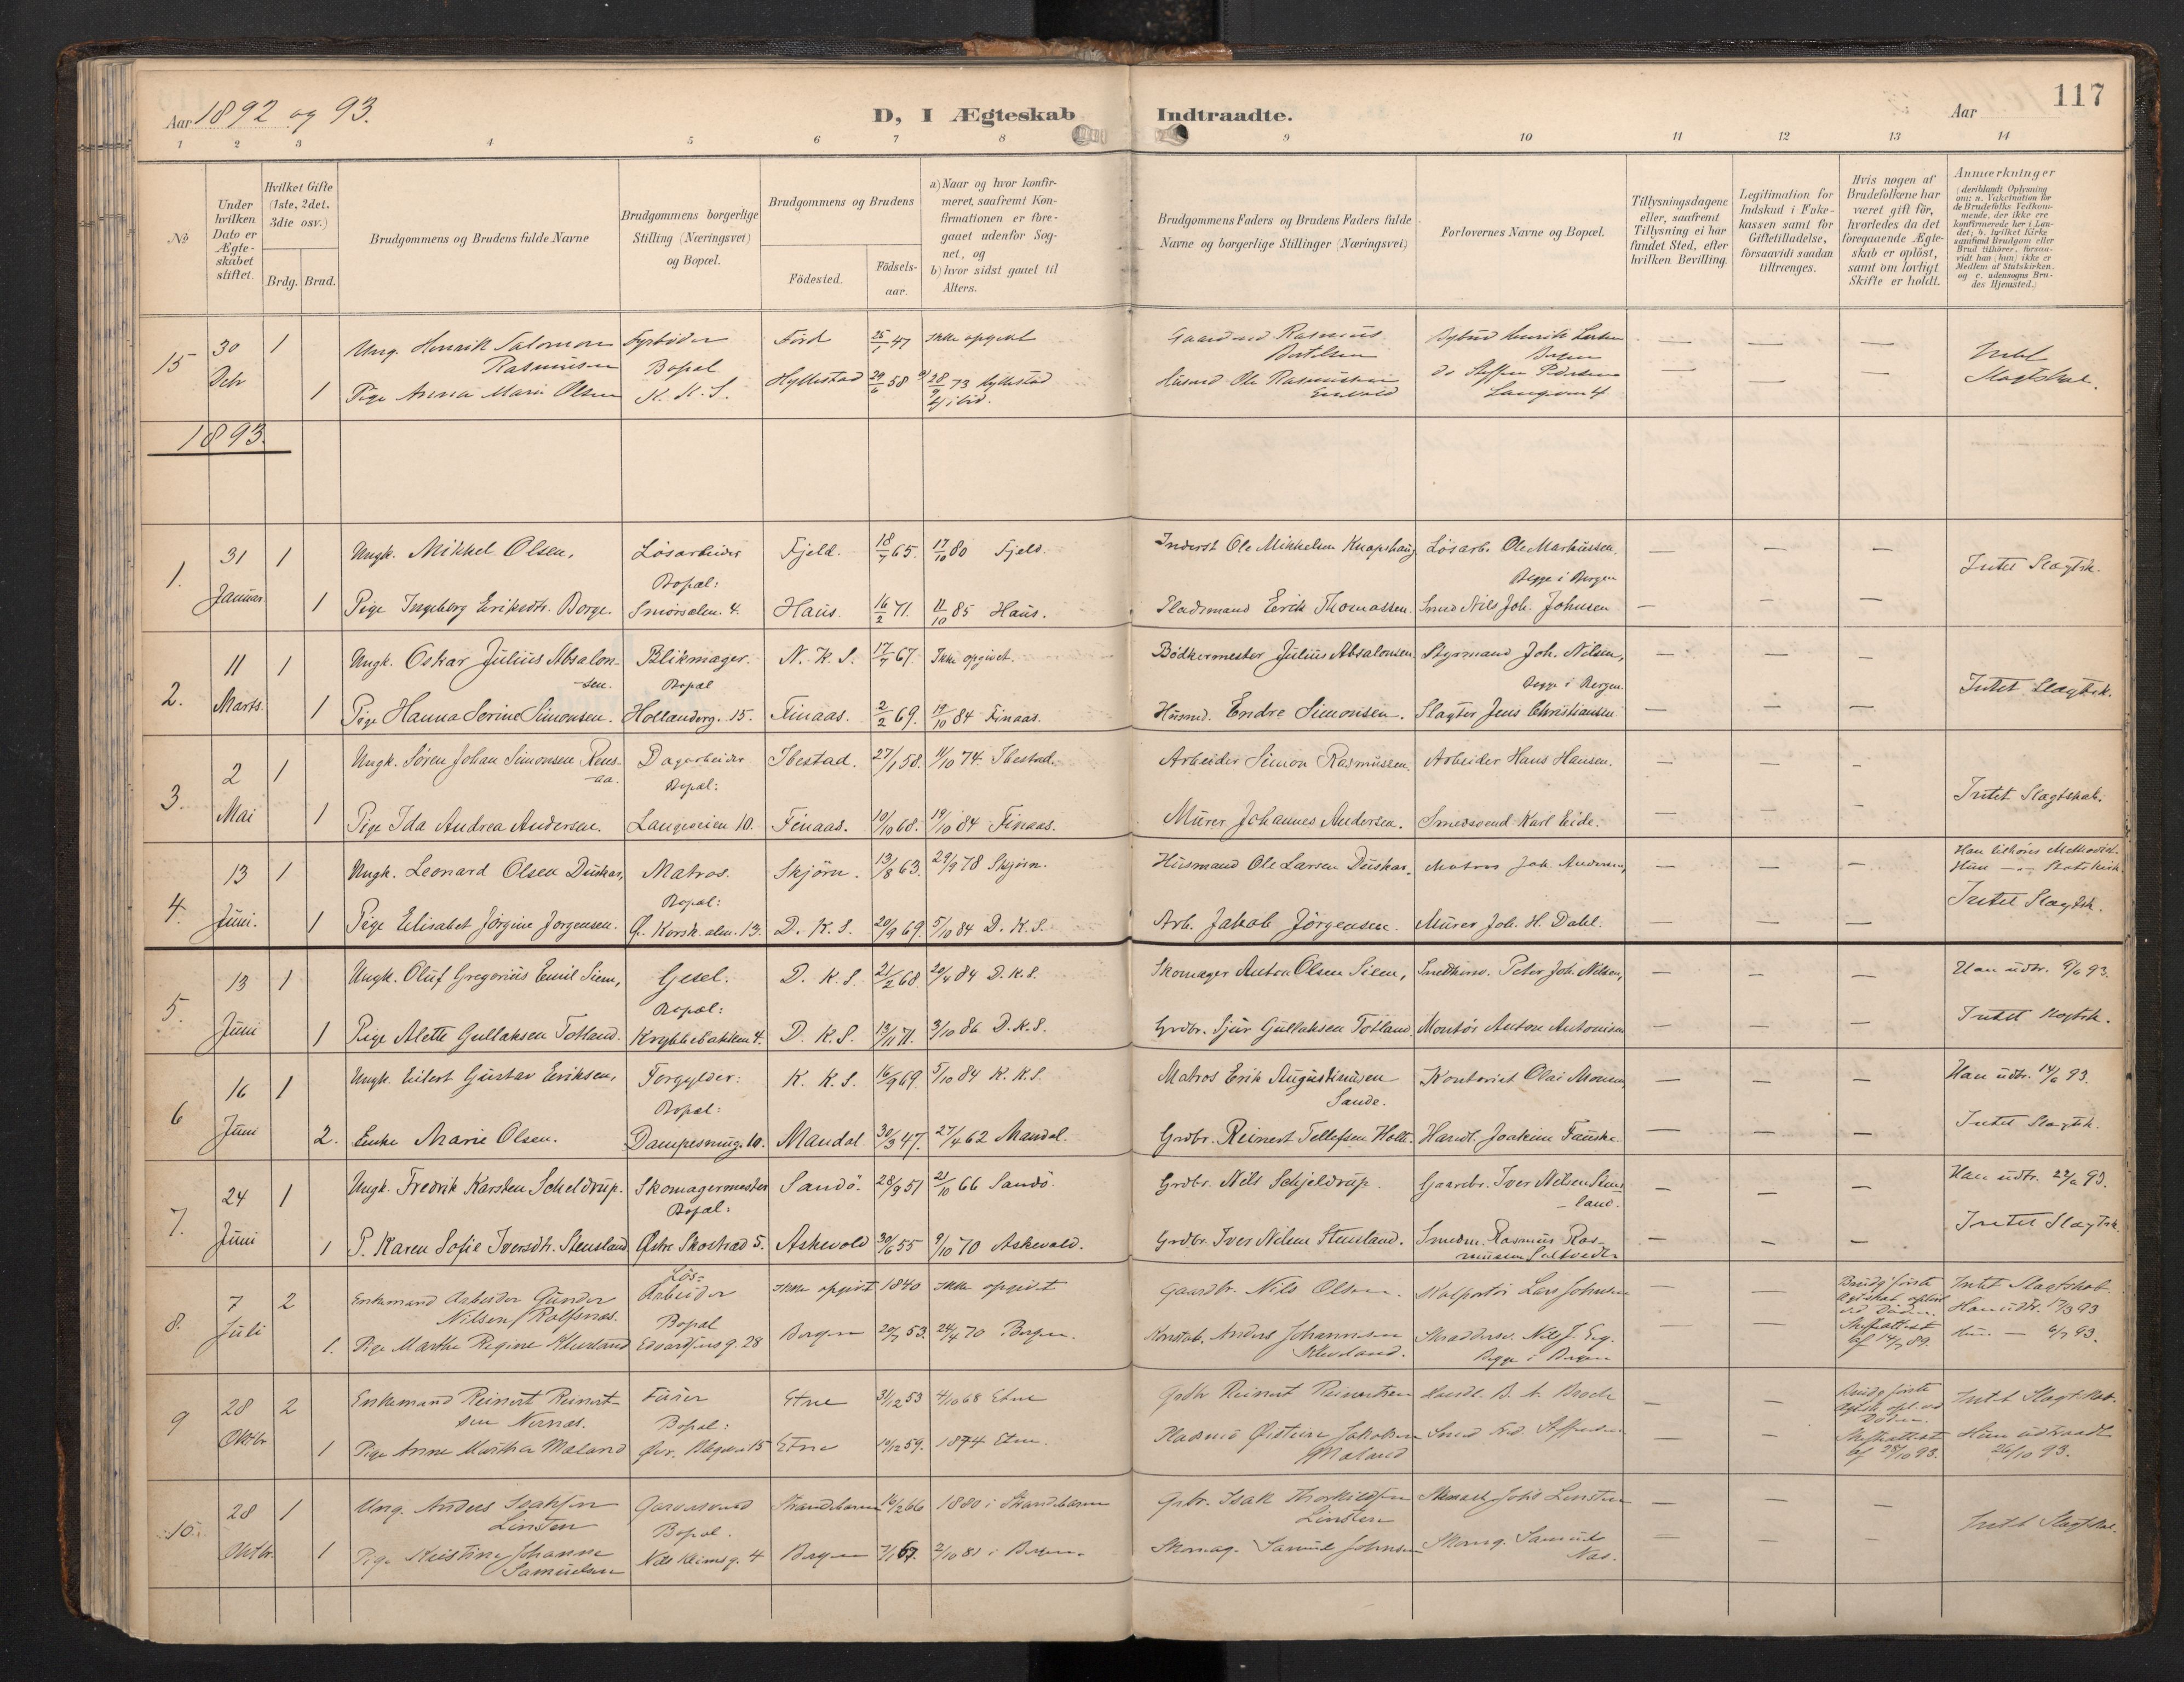 117
Aar 1892 og 93.
D, I Ægteskab Indtraadte.
Aar
1 2 3 4 5 6 7 8 9 10 11 12 13 14
No
Under hvilken Dato er Ægteskabet stiftet.
Hvilket Gifte (1ste, 2det, 3die osv.)
Brdg. Brud.
Brudgommens og Brudens fulde Navne
Brudgommens borgerlige Stilling (Næringsvei) og Bopæl.
Brudgommens og Brudens
Födested.
Födsels-aar.
a) Naar og hvor konfirmeret, saafremt Konfirmationen er foregaaet udenfor Sognet, og
b) hvor sidst gaaet til Alters.
Brudgommens Faders og Brudens Faders fulde Navne og borgerlige Stillinger (Næringsvei)
Forlovernes Navne og Bopæl.
Tillysningsdagene eller, saafremt Tillysning ei har fundet Sted, efter hvilken Bevilling.
Legitimation for Indskud i Enkekassen samt for Giftetilladelse, forsaavidt saadan tiltrænges.
Hvis nogen af Brudefolkene har været gift för, hvorledes da det foregaaende Ægteskab er oplöst, samt om lovligt Skifte er holdt.
Anmærkninger
(deriblandt Oplysning om: a. Vakcination for de Brudefolks Vedkommende, der ikke ere konfirmerede her i Landet; b. hvilket Kirkesamfund Brudgom eller Brud tilhörer, forsaavidt han (hun) ikke er Medlem af Statskirken, og c. udensogns Brudes Hjemsted.)
15 30 Debr 1 Ung. Henrik Salomon Rasmusen Fyrböder Förd 25/1 47 Ikke opgivet Gaardmd Rasmus Bertelsen
Bopæl
1 Pige Anna Marie Olsen K. K. S. Hyllestad 29/6 58 a) 28/9 73 Hyllestad b) ibid. Husmd Ole Rasmussen do Steffen Pedersen
Intet Slagtskab.
1893.
1. 31 Januar 1 Ungk. Mikkel Olsen, Lösarbeider Fjeld. 18/7 65. 17/10 80 Fjeld. Inderst Ole Mikkelsen Knapshaug Lösarb. Ole Markussen.
Bopæl: Begge i Bergen Intet Slagtsk.
1 Pige Ingeborg Eriksdtr. Borge. Smörsalen. 4. Haus. 16/2 71. 11/10 85 Haus. Pladsmand Erik Thomassen. Smed Nils Joh. Johnsen
2. 11 Marts 1 Ungk. Oskar Julius Absalonsen. Blikmager. N. K. S. 17/7 67. Ikke opgivet. Bödkermester Julius Absalonsen. Styrmand Joh. Nilsen,
Bopæl Begge i Bergen. Intet Slagtsk.
1 Pige Hanna Serine Simonsen. Hollænderg. 15. Finaas. 2/2 69. 19/10 84 Finaas. Husmd. Endre Simonsen. Slagter Jens Christiansen
3. 2 Mai 1 Ungk. Sören Johan Simonsen Rensaa. Dagarbeider Ibestad. 27/1 58. 11/10 74. Ibestad. Arbeider Simon Rasmussen. Arbeider Hans Hansen.
Bopæl: Intet Slagtskab.
1 Pige Ida Andrea Andersen. Langeveien 10. Finaas. 10/10 68. 19/10 84 Finaas. Murer Johannes Andersen. Smedsvend Karl Eide.
4. 13 Juni. 1 Ungk. Leonard Olsen Duskar, Matros. Skjörn. 13/8 63. 29/9 78 Skjörn. Husmand Ole Larsen Duskar. Matros Joh. Andersen,
Han tilhörer Methodist. Hun — Statskirk.
Bopæl: Intet Slagtsk.
1 Pige Elisabet Jörgine Jörgensen. Ö. Korsk. alm. 13. D. K. S. 20/9 69. 5/10 84 D. K. S. Arb. Jakob Jörgensen. Murer Joh. H. Dahl.
5. 13 Juni 1 Ungk. Oluf Gregorius Emil Siem, Gesel. D. K. S. 21/2 68. 20/4 84 D. K. S. Skomager Anton Olsen Siem, Smedkunsv. Peter Joh. Nilsen, Han udtr. 9/6 93.
Bopæl: Intet Slagtsk.
1 Pige Alette Gullaksen Totland. Krybbebakken 4. D. K. S. 13/11 71. 3/10 86 D. K. S. Grdbr. Sjur Gullaksen Totland. Montör Anton Antonisen
6 16 Juni 1 Ungk. Eilert Gustav Eriksen, Forgylder: K. K. S. 16/9 69. 5/10 84 K. K. S. Matros Erik Augustinusen Sande. Kontorist Olai Monsen Han udtr. 14/6 93.
Bopæl: Intet Slagtsk.
2. Enke Marie Olsen. Dampesmug. 10. Mandal 30/3 47. 27/4 62 Mandal. Grdbr. Reinert Tellefsen Holte. Handl. Joakim Fauske
7. 24 Juni 1 Ungk. Fredrik Karsten Scheldrup. Skomagermester Sandö. 28/9 51 21/10 66 Sandö. Grdbr. Nils Schjeldrup. Gaardbr. Iver Nilsen Stensland. Han udtr. 22/6 93.
Bopæl: Intet Slagtsk.
1 P. Karen Sofie Iversdtr. Stensland Östre Skostræd 5. Askevold 30/6 55 9/10 70 Askevold. Grdbr. Iver Nilsen Stensland. Smedm. Rasmus Rasmussen
8. 7 Juli 2 Enkemand Arbeider Gunder Nilsen Rolfsnæs. Lös-Arbeider Ikke opgivet 1840 Ikke opgivet Gaardbr. Nils Olsen. Kolportör Lars Johnsen Brudg. förste Ægtskab oplöst ved Döden. Skifteattest af 14/7 89. Intet Slagtskab. Han udtr. 17/3 93
Bopæl Hun — 6/7 93.
1. Pige Marthe Regine Klevland Edvardsensg. 28 Bergen 20/7 53. 24/4 70 Bergen. Konstab. Anders Johannesen Klevland. Skræddersv. Nils J. Eeg. Begge i Bergen
9 28 Oktbr 2 Enkemand Reinert Reinertsen Nernæs. Furer Etne 31/12 53 4/10 68 Etne Gdbr Reinert Reinertsen Handl. B. A. Broch Brudg. förste Ægtsk. opl. ved Döden. Skifteattest af 28/10 93. Intet Slagtskab.
Bopæl: Hun udtraadt 26/10 93.
1 Pige Anne Martha Maland Övr. Blegen 15 Etne 19/12 59. 1874 Etne. Pladsmd Östein Jakobsen Maland
10. 28 Oktbr. 1 Ung. Anders Isaksen Linsten Garversvend Strandebarm 16/2 66 1880 i Strandebarm Gbr. Isak Thorkildsen Linsten
Bopæl. Intet Slagtskab.
1 Pige Kristine Johanne Samuelsen Nils Klimsg. 4 Bergen 7/1 67. 2/10 81 i Bergen. Skomag. Samuel Johnsen Skomg. Samuel Næs.